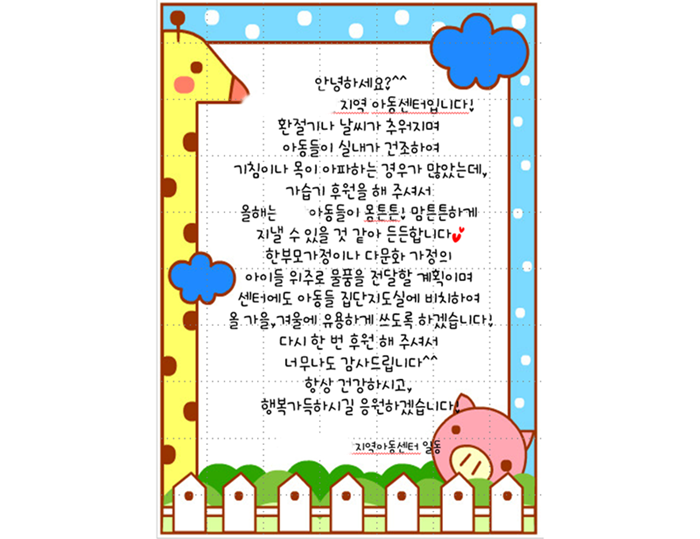 안녕하세요?^^
지역 아동센터입니다!
환절기나 날씨가 추워지며
아동들이 실내가 건조하여
기침이나 목이 아파하는 경우가 많았는데,
가습기 후원을 해 주셔서
올해는 아동들이 몸튼튼! 맘튼튼하게
지낼 수 있을 것 같아 든든합니다
한부모가정이나 다문화 가정의
아이들 위주로 물품을 전달할 계획이며
센터에도 아동들 집단지도실에 비치하여
올 가을,겨울에 유용하게 쓰도록 하겠습니다!
다시 한 번 후원 해 주셔서
너무나도 감사드립니다^^
항상 건강하시고,
행복가득하시길 응원하겠습니다!
지역아동센터 일동